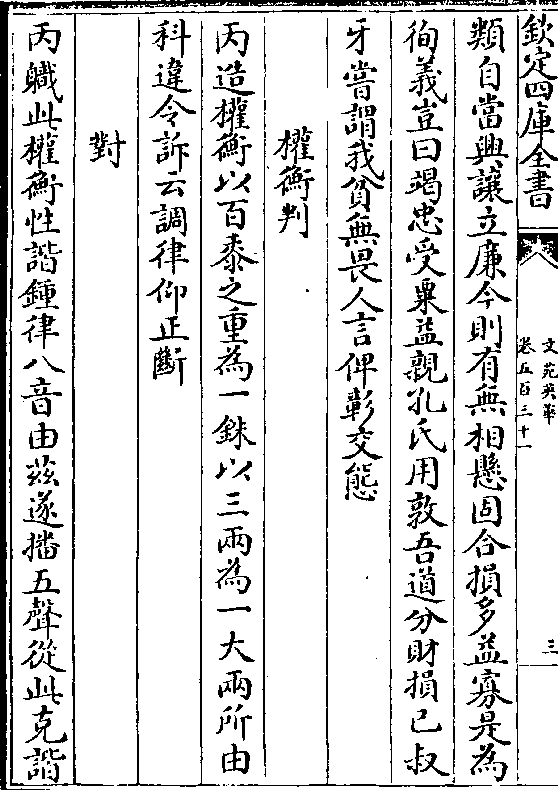 欽定四庫全書
文苑英華
卷五百三十一
三
類自當興讓立廉今則有無相懸固合損多益寡是為
徇義豈曰竭忠受粟益親孔氏用敦吾道分財損已叔
牙嘗謂我貧無畏人言俾彰交態
權衡判
丙造權衡以百黍之重為一銖以三兩為一大兩所由
科違令訴云調律仰正斷
對
丙職此權衡性諧鍾律八音由茲遂播五聲從此克諧